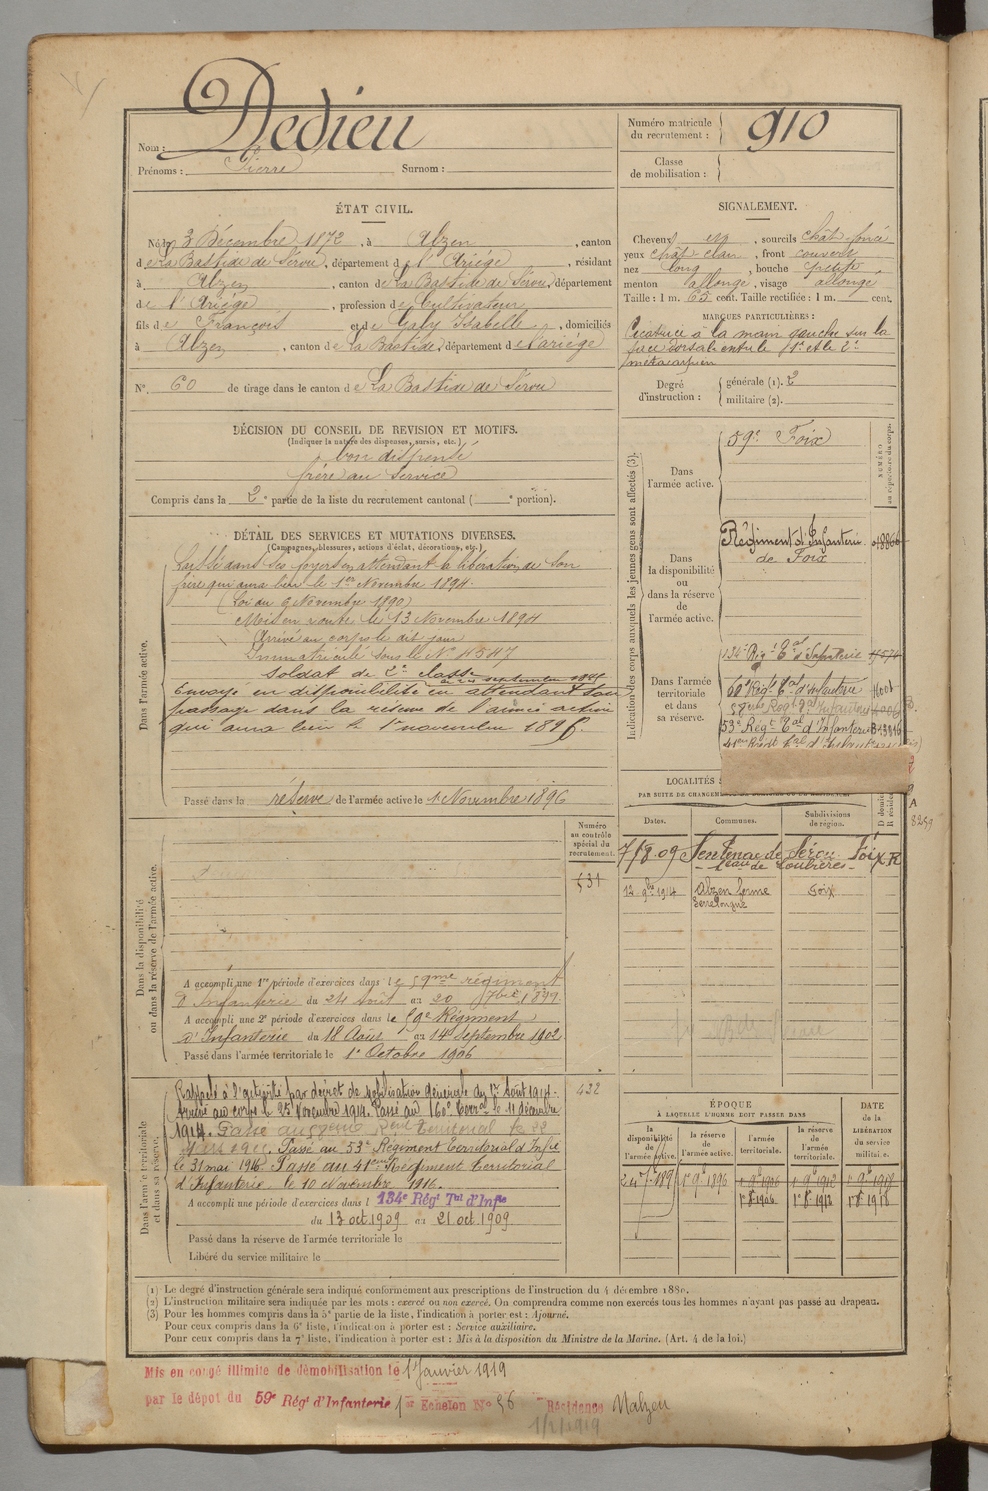 Nom : Dedieu
Prénoms : Pierre Surnom :
Numéro matricule du recrutement : 910
Classe de mobilisation :
ÉTAT CIVIL.
Né le 3 Décembre 1872, à Alzen, canton
de La Bastide de Sérou, département de l'Ariége, résidant
à Alzen, canton de La Bastide de Sérou, département
de l'Ariége, profession de Cultivateur
fils de François et de Galy Isabelle, domiciliés
à Alzen, canton de La Bastide, département de l'ariége
N° 60 de tirage dans le canton de La Bastide de Sérou
SIGNALEMENT.
Cheveux, sourcils chât foncé
yeux chât clair, front couvert
nez long, bouche petite
menton allongé, visage allongé
Taille : 1 m. 65 cent. Taille rectifiée : 1 m. cent.
MARQUES PARTICULIÈRES :
Cicatrice à la main gauche sur la
face dorsale entre le 1er et le 2e
métacarpien
Degré d'instruction : générale (1). 2
militaire (2).
DÉCISION DU CONSEIL DE REVISION ET MOTIFS.
(Indiquer la nature des dispenses, sursis, etc.)
bon dispensé
frère au Service
Compris dans la 2e partie de la liste du recrutement cantonal ( e portion).
DÉTAIL DES SERVICES ET MUTATIONS DIVERSES.
(Campagnes, blessures, actions d'éclat, décorations, etc.)
Dans l'armée active.
Laissé dans ses foyers en attendant la libération de son
frère qui aura lieu le 1er Novembre 1894.
(Loi du 6 Novembre 1890)
Mis en route le 13 Novembre 1894
Arrivé au corps le dit jour
Immatriculé sous le N° 4547
Soldat de 2e classe
Envoyé en disponibilité en attendant son
passage dans la réserve de l'armée active
qui aura lieu le 1er novembre 1896.
Passé dans la réserve de l'armée active le 1 Novembre 1896
Indication des corps auxquels les jeunes gens sont affectés (3).
NUMÉRO au répertoire du corps.
Dans l'armée active.
59e Foix
Dans la disponibilité ou dans la réserve de l'armée active.
Régiment d'Infanterie
de Foix
Dans l'armée territoriale et dans sa réserve.
134e Rég. Tal d'Infanterie
53e Régt Tal d'Infanterie
LOCALITÉS
Dates. Communes. Subdivisions de région.
7/8.09 Sentenac de Sérou Foix R
12 9bre 1914 Alzen ferme Foix
Dans la disponibilité ou dans la réserve de l'armée active.
Numéro au contrôle spécial du recrutement.
531
A accompli une 1re période d'exercices dans le 59me régiment
d'Infanterie du 24 Août au 20 7bre 1899
A accompli une 2e période d'exercices dans le 59e Régiment
d'Infanterie du 18 Août au 14 septembre 1902
Passé dans l'armée territoriale le 1er Octobre 1906
Dans l'armée territoriale et dans sa réserve.
432
Rappelé à l'activité par décret de mobilisation générale du 1er Août 1914.
Arrivé au corps le 25 Novembre 1914. Passé au 160e Terral le 11 décembre
1914.
Passé au 53e Régiment Territorial d'Infie
le 31 mai 1916. Passé au 41eme Régiment Territorial
d'Infanterie le 10 Novembre 1916.
A accompli une période d'exercices dans l 134e Régt Tal d'Infie
du 13 oct. 1909 au 21 oct. 1909
Passé dans la réserve de l'armée territoriale le
Libéré du service militaire le
ÉPOQUE
À LAQUELLE L'HOMME DOIT PASSER DANS
la disponibilité de l'armée active. la réserve de l'armée active. l'armée territoriale. la réserve de l'armée territoriale.
DATE de la LIBÉRATION du service militaire.
1er 9b 1896 1er 9b 1906 1er 9b 1912 1er 9b 1918
(1) Le degré d'instruction générale sera indiqué conformément aux prescriptions de l'instruction du 4 décembre 1889.
(2) L'instruction militaire sera indiquée par les mots : exercé ou non exercé. On comprendra comme non exercés tous les hommes n'ayant pas passé au drapeau.
(3) Pour les hommes compris dans la 5e partie de la liste, l'indication à porter est : Ajourné.
Pour ceux compris dans la 6e liste, l'indication à porter est : Service auxiliaire.
Pour ceux compris dans la 7e liste, l'indication à porter est : Mis à la disposition du Ministre de la Marine. (Art. 4 de la loi.)
Mis en congé illimité de démobilisation le 1 Janvier 1919
par le dépôt du 59e Régt d'Infanterie 1er Echelon N° 56 Résidence Nalzen